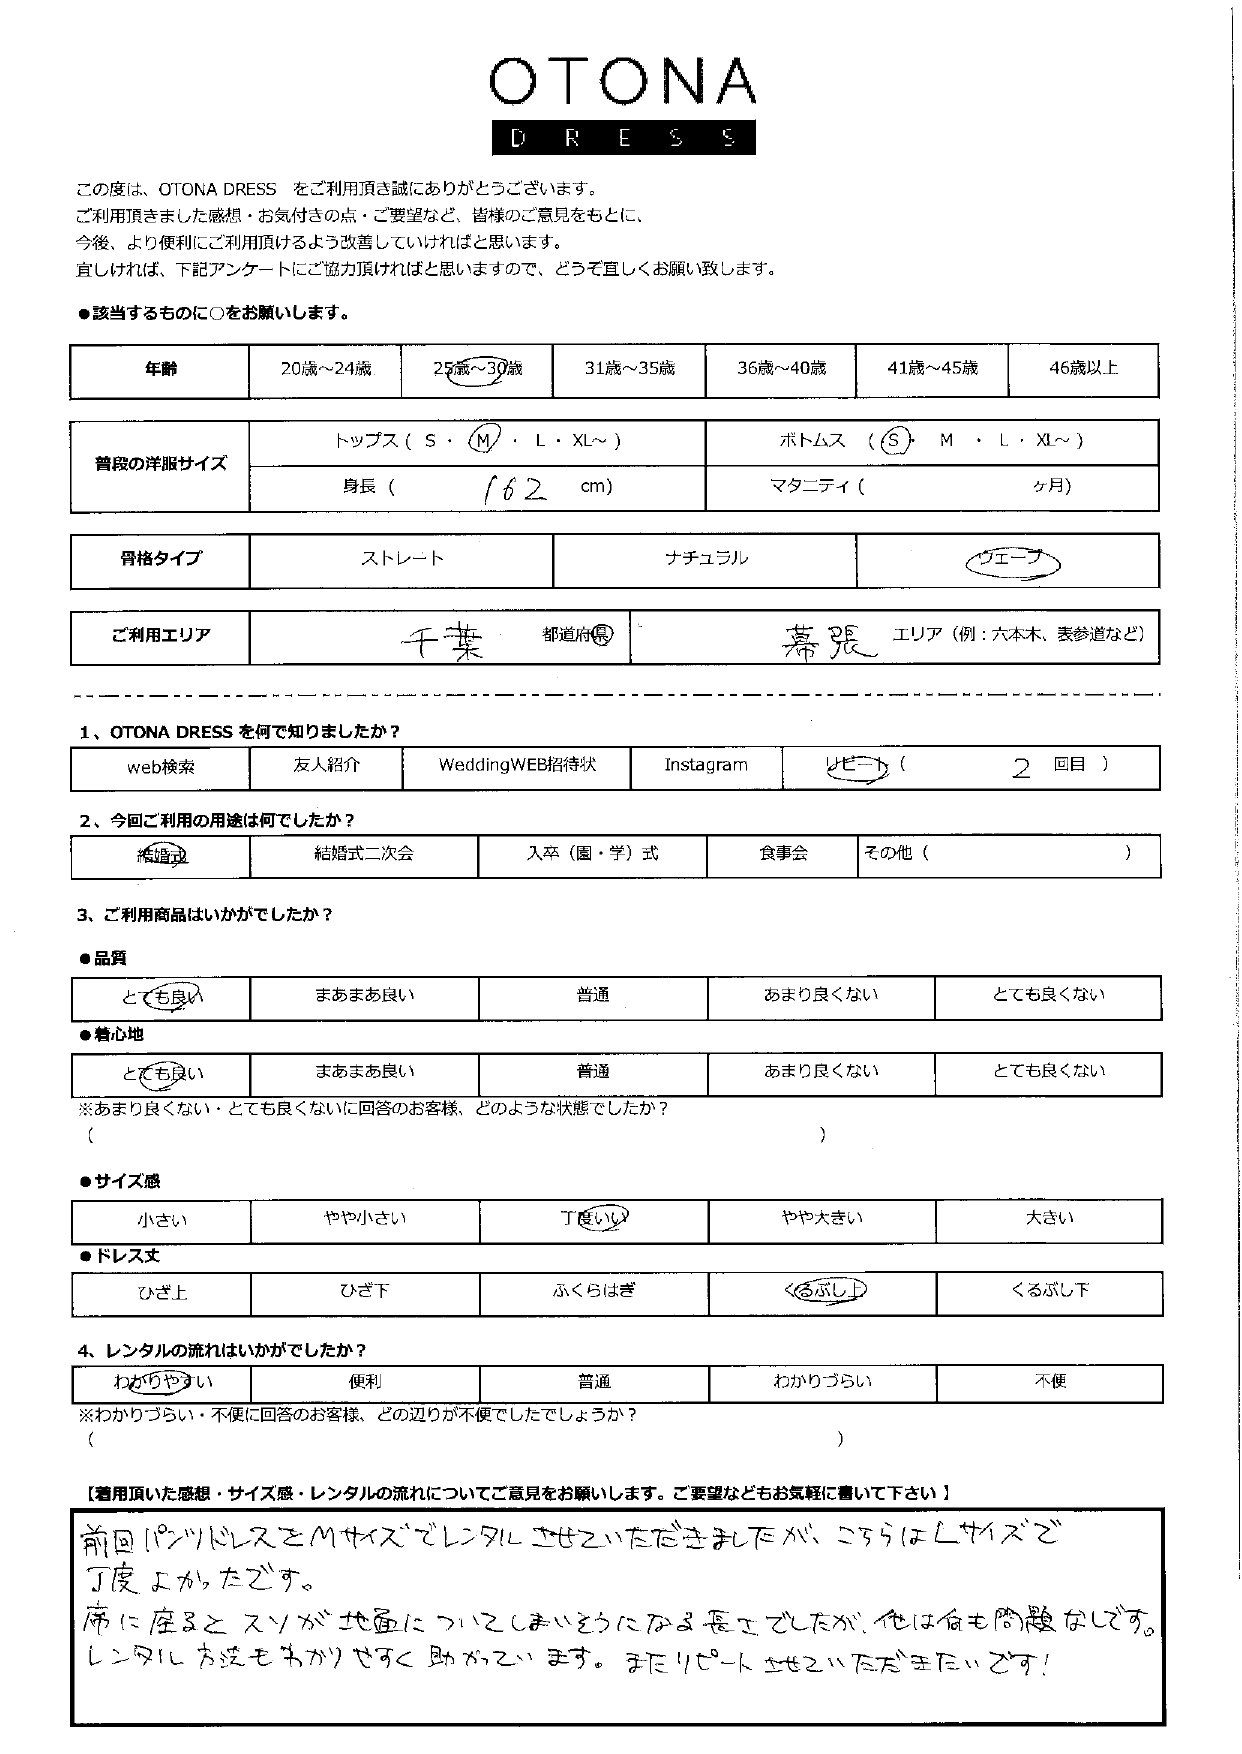 OTONA
DRESS
この度は、OTONA DRESS をご利用頂き誠にありがとうございます。
ご利用頂きました感想・お気付きの点・ご要望など、皆様のご意見をもとに、
今後、より便利にご利用頂けるよう改善していければと思います。
宜しければ、下記アンケートにご協力頂ければと思いますので、どうぞ宜しくお願い致します。
●該当するものに○をお願いします。
年齢 20歳～24歳 25歳～30歳 31歳～35歳 36歳～40歳 41歳～45歳 46歳以上
普段の洋服サイズ トップス ( S ・ M ・ L ・ XL～ ) ボトムス ( S ・ M ・ L ・ XL～ )
身長 ( 162 cm) マタニティ ( ヶ月)
骨格タイプ ストレート ナチュラル ウェーブ
ご利用エリア 千葉 都道府県 幕張 エリア（例：六本木、表参道など）
1、OTONA DRESS を何で知りましたか？
web検索 友人紹介 WeddingWEB招待状 Instagram リピート ( 2 回目 )
2、今回ご利用の用途は何でしたか？
結婚式 結婚式二次会 入卒（園・学）式 食事会 その他 ( )
3、ご利用商品はいかがでしたか？
●品質
とても良い まあまあ良い 普通 あまり良くない とても良くない
●着心地
とても良い まあまあ良い 普通 あまり良くない とても良くない
※あまり良くない・とても良くないに回答のお客様、どのような状態でしたか？
( )
●サイズ感
小さい やや小さい 丁度いい やや大きい 大きい
●ドレス丈
ひざ上 ひざ下 ふくらはぎ くるぶし上 くるぶし下
4、レンタルの流れはいかがでしたか？
わかりやすい 便利 普通 わかりづらい 不便
※わかりづらい・不便に回答のお客様、どの辺りが不便でしたでしょうか？
( )
【着用頂いた感想・サイズ感・レンタルの流れについてご意見をお願いします。ご要望などもお気軽に書いて下さい 】
前回パンツドレスをMサイズでレンタルさせていただきましたが、こちらはLサイズで
丁度よかったです。
席に座るとスソが地面についてしまいそうになる長さでしたが、他は何も問題なしです。
レンタル方法もわかりやすく助かっています。またリピートさせていただきたいです！